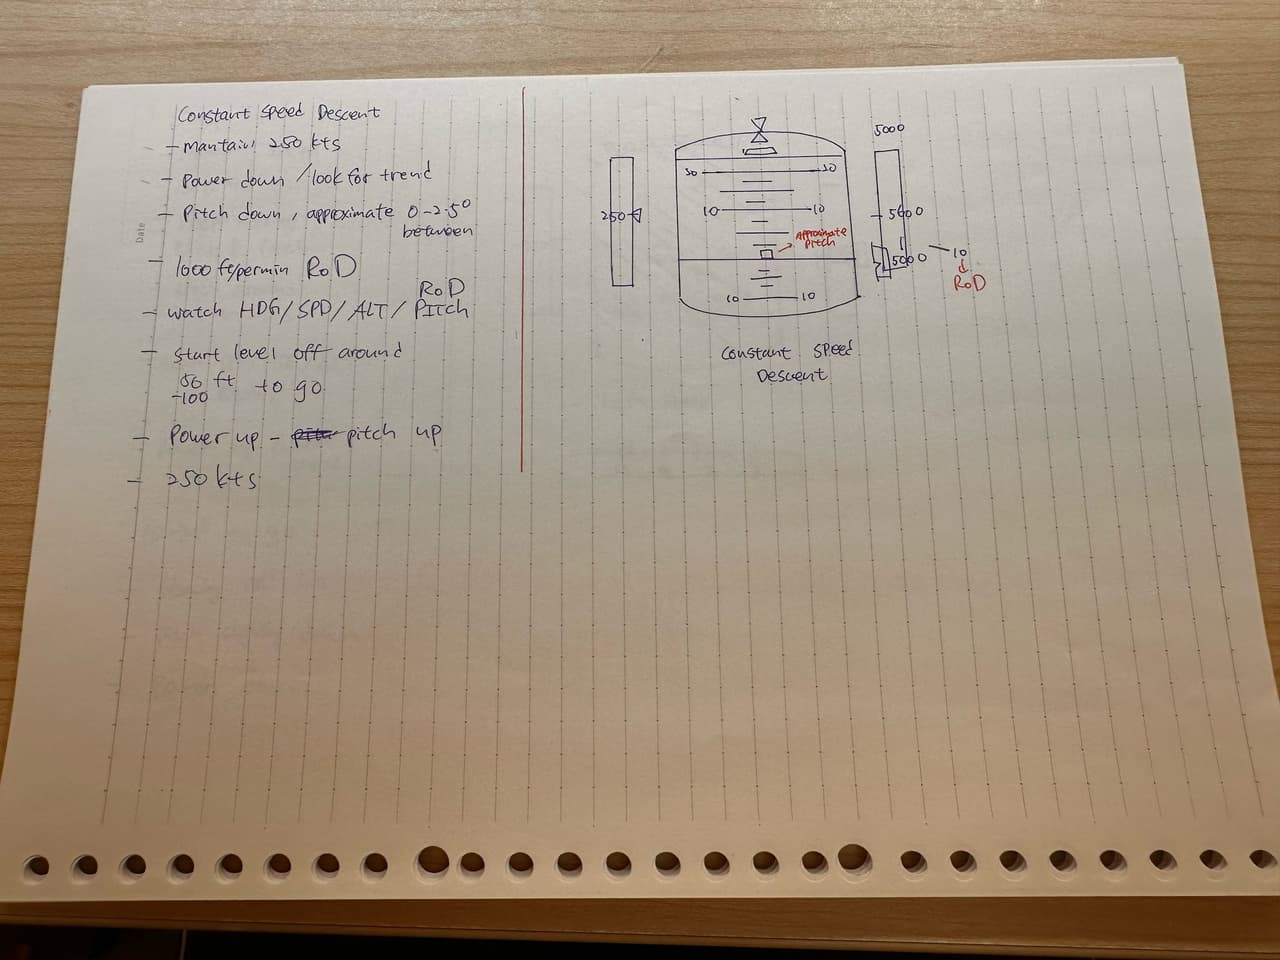 Constant Speed Descent
- Mantain 250 kts
- Power down / look for trend
- Pitch down, approximate 0-2.5°
between
- 1000 ft/permin RoD
RoD
- watch HDG/SPD/ALT/Pitch
- start level off around
50 ft to go
-100
- Power up - pitch up
- 250 kts
Date
5000
30 30
250
10 10
5600
Approximate
Pitch
5000
10
RoD
10 10
Constant Speed
Descent